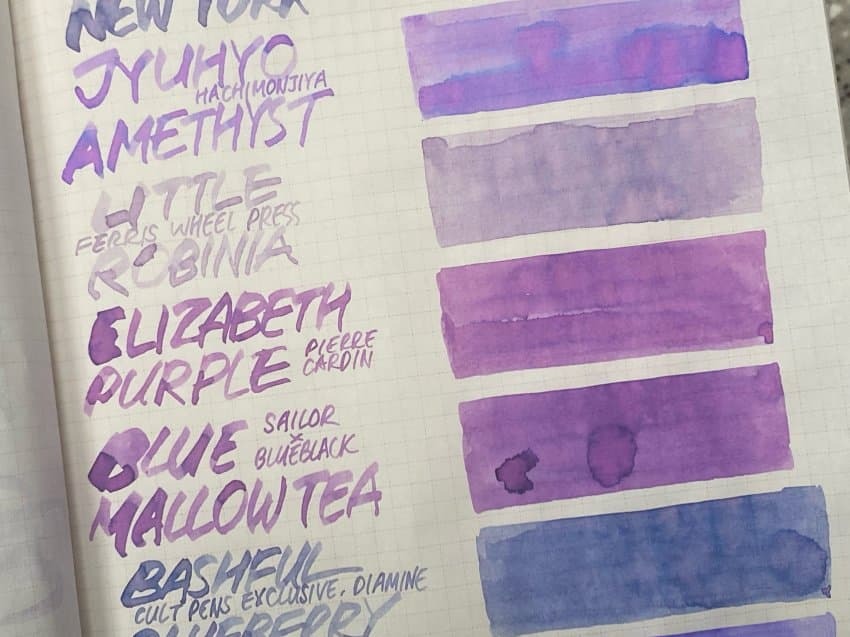 NEW YORK
JYUHYO
HACHIMONJIYA
AMETHYST
LITTLE
FERRIS WHEEL PRESS
ROBINIA
ELIZABETH
PURPLE PIERRE
CARDIN
BLUE SAILOR
×
BLUEBLACK
MALLOW TEA
BASHFUL
CULT PENS EXCLUSIVE, DIAMINE
BLUEBERRY